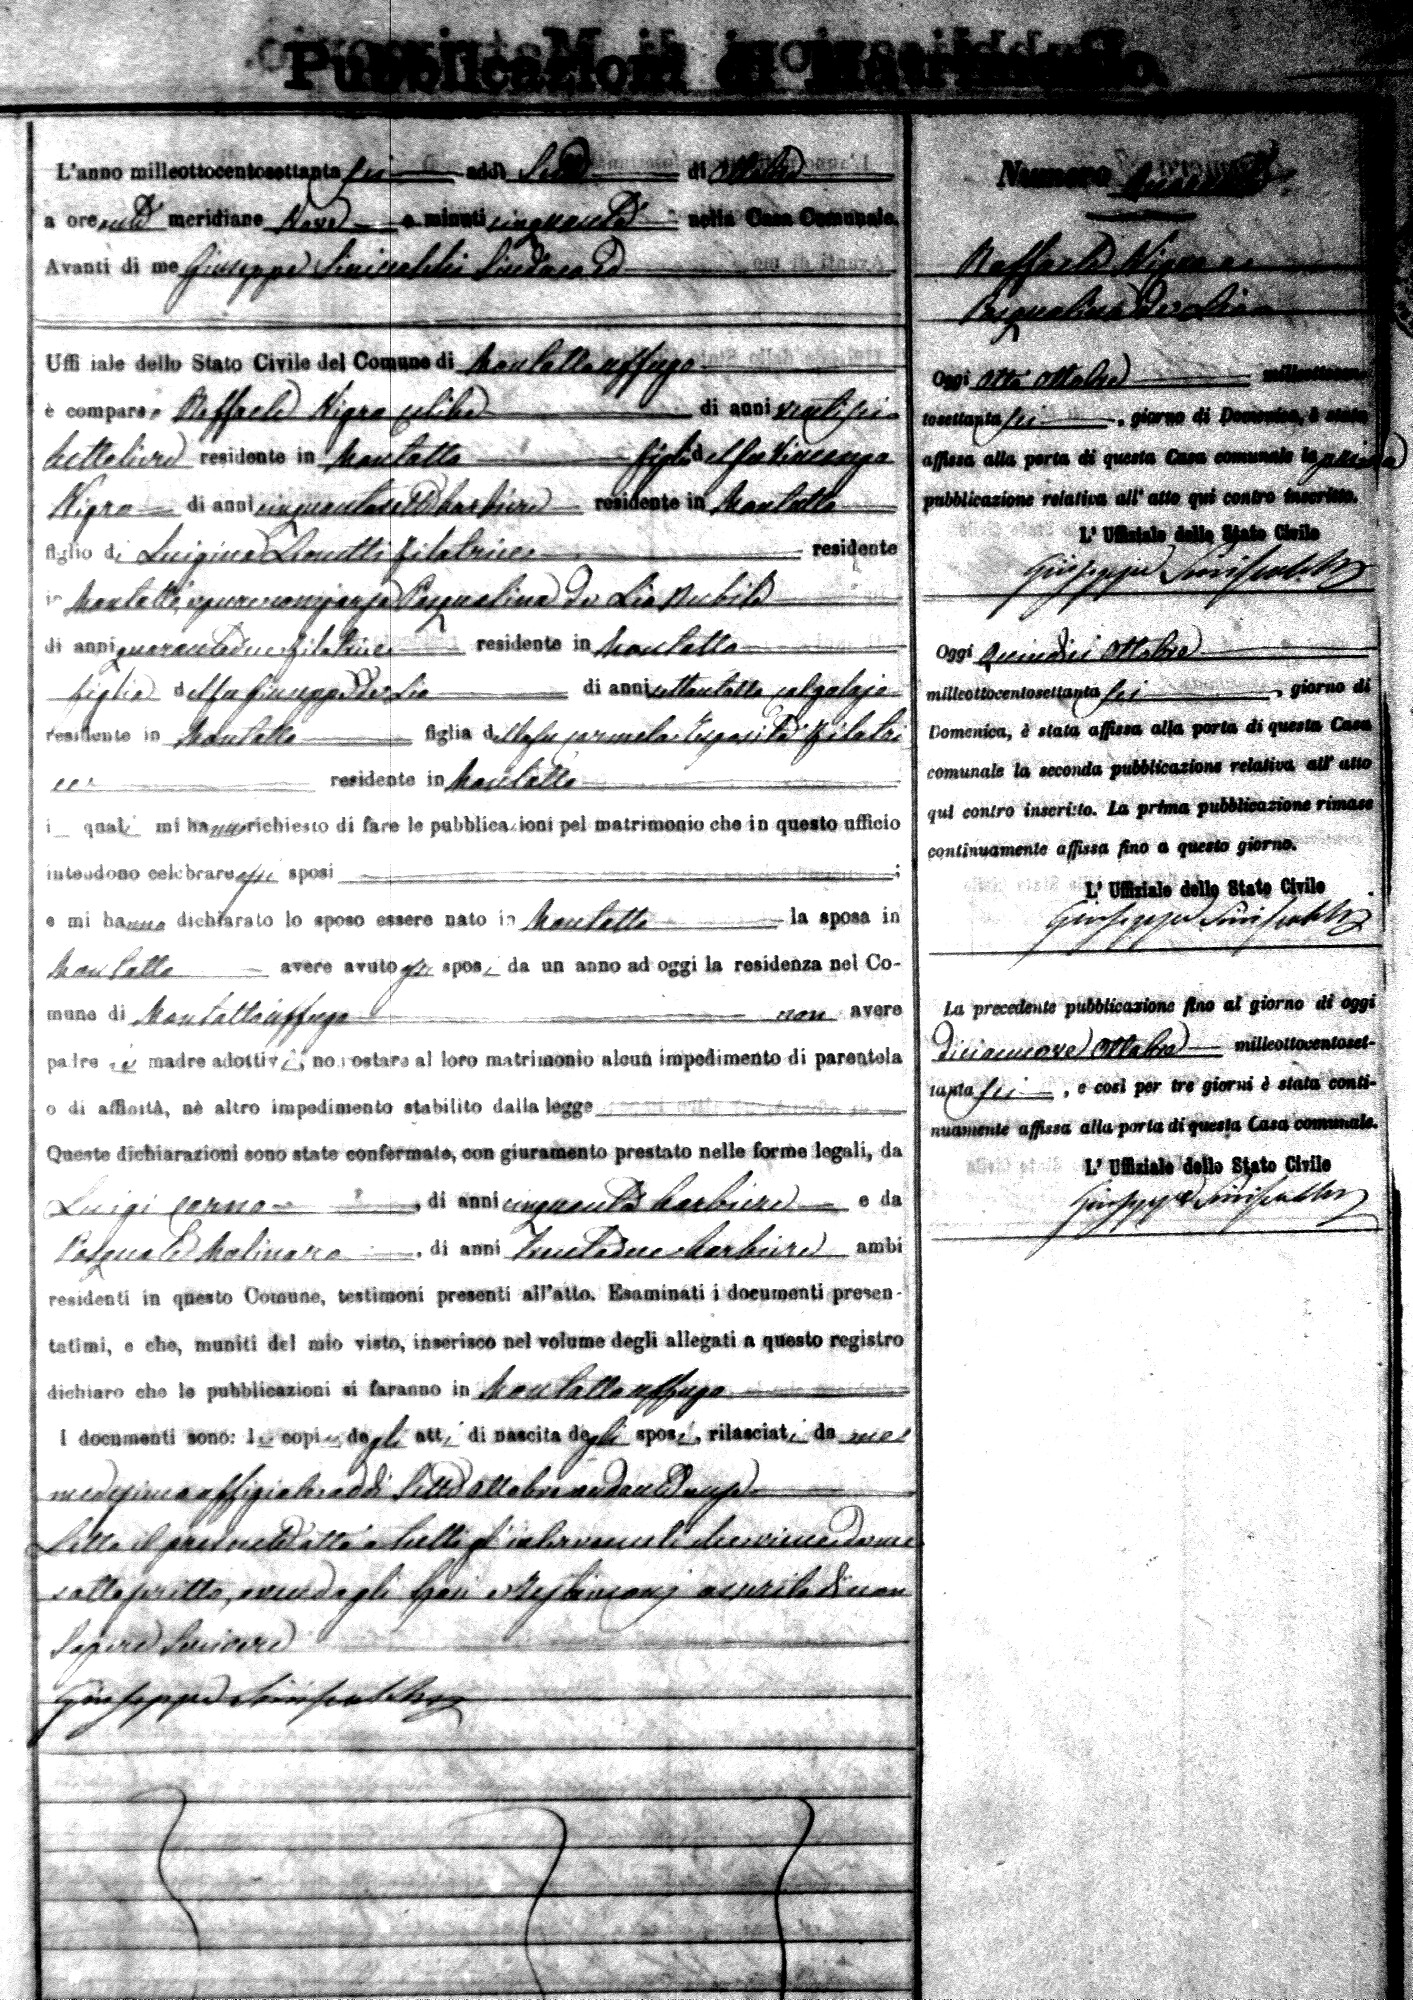 Pubblicazioni di Matrimonio.
L'anno milleottocentosettanta sei addì Sette di Ottobre
a ore anti meridiane Nove e minuti cinquanta nella Casa Comunale.
Avanti di me Giuseppe Sindaco
Uffi iale dello Stato Civile del Comune di Montalto uffugo
è comparso Raffaele Nigro celibe di anni ventisei
bettoliere residente in Montalto figlio del fu Vincenzo
Nigro di anni cinquantasette barbiere residente in Montalto
figlio di Luigina filatrice residente
in Montalto, e pure comparsa Pasqualina de Lio Nubile
di anni quarantadue filatrice residente in Montalto
figlia del fu Giuseppe De Lio di anni settantotto calzolajo
residente in Montalto figlia della fu Carmela Esposito filatri
ce residente in Montalto
i quali mi hanno richiesto di fare le pubblicazioni pel matrimonio che in questo ufficio
intendono celebrare essi sposi ;
e mi hanno dichiarato lo sposo essere nato in Montalto la sposa in
Montalto avere avuto gli sposi da un anno ad oggi la residenza nel Co-
mune di Montalto uffugo non avere
padre nè madre adottivi, non ostare al loro matrimonio alcun impedimento di parentela
o di affinità, nè altro impedimento stabilito dalla legge
Queste dichiarazioni sono state confermate, con giuramento prestato nelle forme legali, da
Luigi di anni cinquanta barbiere e da
Pasquale Molinaro, di anni Trentadue barbiere ambi
residenti in questo Comune, testimoni presenti all'atto. Esaminati i documenti presen-
tatimi, e che, muniti del mio visto, inserisco nel volume degli allegati a questo registro
dichiaro che le pubblicazioni si faranno in Montalto uffugo
I documenti sono: le copie degli atti di nascita degli sposi, rilasciati da me
medesimo uffiziale addì Sette Ottobre andante mese
Letto il presente atto a tutti gl'intervenuti
sottoscritto, avendo gli sposi e testimonj asserito di non
sapere scrivere
Giuseppe
Numero
Raffaele Nigro e
Pasqualina De Lio
Oggi otto Ottobre milleottocen-
tosettanta sei, giorno di Domenica, è stata
affissa alla porta di questa Casa comunale la prima
pubblicazione relativa all' atto qui contro inscritto.
L' Uffiziale dello Stato Civile
Giuseppe
Oggi Quindici Ottobre
milleottocentosettanta sei, giorno di
Domenica, è stata affissa alla porta di questa Casa
comunale la seconda pubblicazione relativa all' atto
qui contro inscritto. La prima pubblicazione rimase
continuamente affissa fino a questo giorno.
L' Uffiziale dello Stato Civile
Giuseppe
La precedente pubblicazione fino al giorno di oggi
diciannove Ottobre milleottocentoset-
tanta sei, e così per tre giorni è stata conti-
nuamente affissa alla porta di questa Casa comunale.
L' Uffiziale dello Stato Civile
Giuseppe